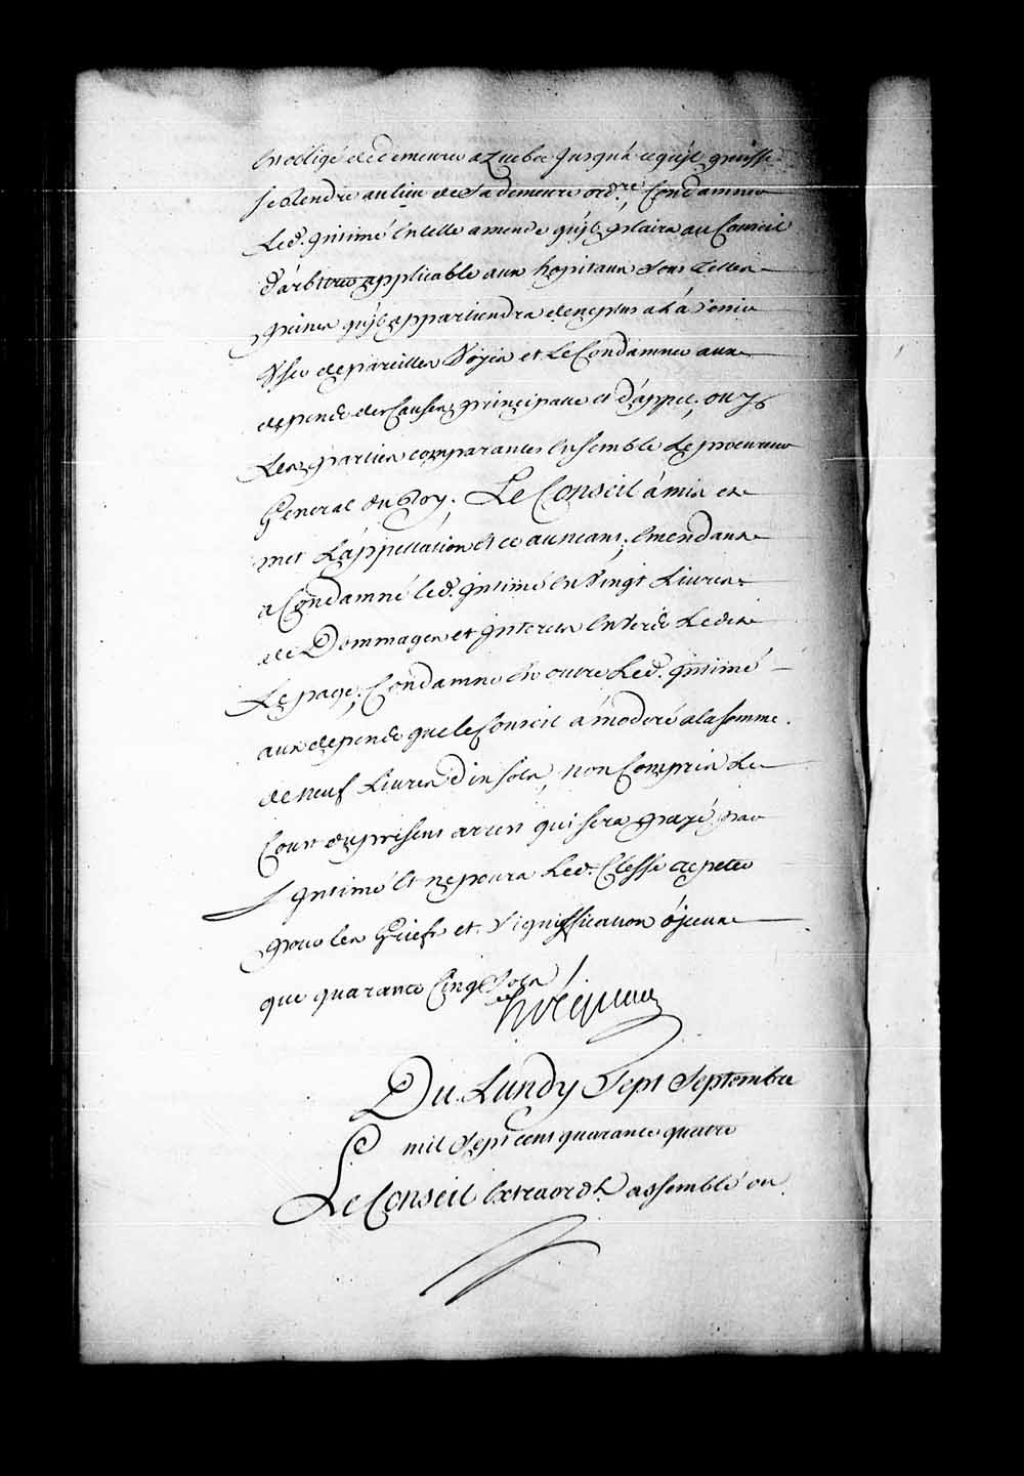 est obligé de demeurer a Quebec Jusqu'a ce qu'jl puisse
se Rendre au lieu de sa demeure ordre, Condamner
Led. Jntimé en telle amende qu'jl plaira au Conseil
d'arbitrer applicable aux hopitaux sous telles
peines qu'jl appartiendra de ne plus a l'avenir
User de pareilles Voÿes et Le Condamner aux
depens des Causes principalle et d'appel, ouÿ
Les parties comparantes ensemble Le procureur
General du Roy; Le Conseil a mis et
met L'appellation et ce au neant; emendant
a Condamné led. Jntimé en Vingt Livres
de Dommages et Jnterets envers Ledit
Le page; Condamne en outre Led. Jntimé
aux depens que le Conseil a moderé a la somme
de neuf Livres dix sols, non Compris Le
Cout du present arrest qui sera payé par
L'Jntimé et ne poura Led. Clesse repeter
pour les Griefs et Signiffication d'jceux
que quarante Cinq Sols
Du Lundy Sept Septembre
mil Sept cent quarante quatre
Le Conseil extraord.t assemblé ou